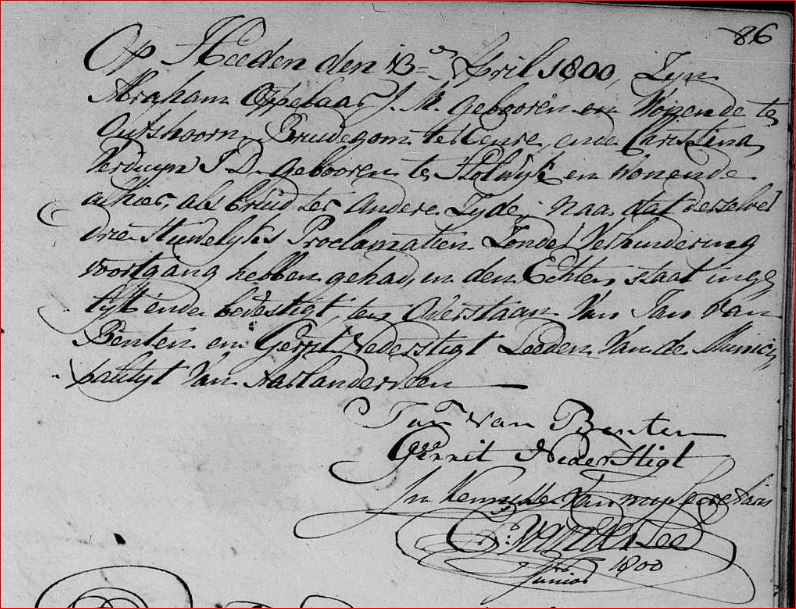 86
Op Heeden den 13en April 1800, Zyn
Abraham Oppelaar J. M. gebooren en Wonende te
Outshoorn Bruidegom ter Eenre, ende Christina
Verduyn J D. gebooren te Holwyk en wonende
alhier, als bruid ter andere Zyde, naa dat derselver
drie Huwelyks Proclamatien Zonder Verhindering
voortgang hebben gehad, in den Echten staat inge,
lyt ende bevestigt, ten Overstaan Van Jan van
Benten en Gerrit Nederstigt Leeden Van de Munici,
paliteyt Van Aarlanderveen
Jan van Benten
Gerrit Nederstigt
In Kennisse Van my Secretaris
Junior 1800